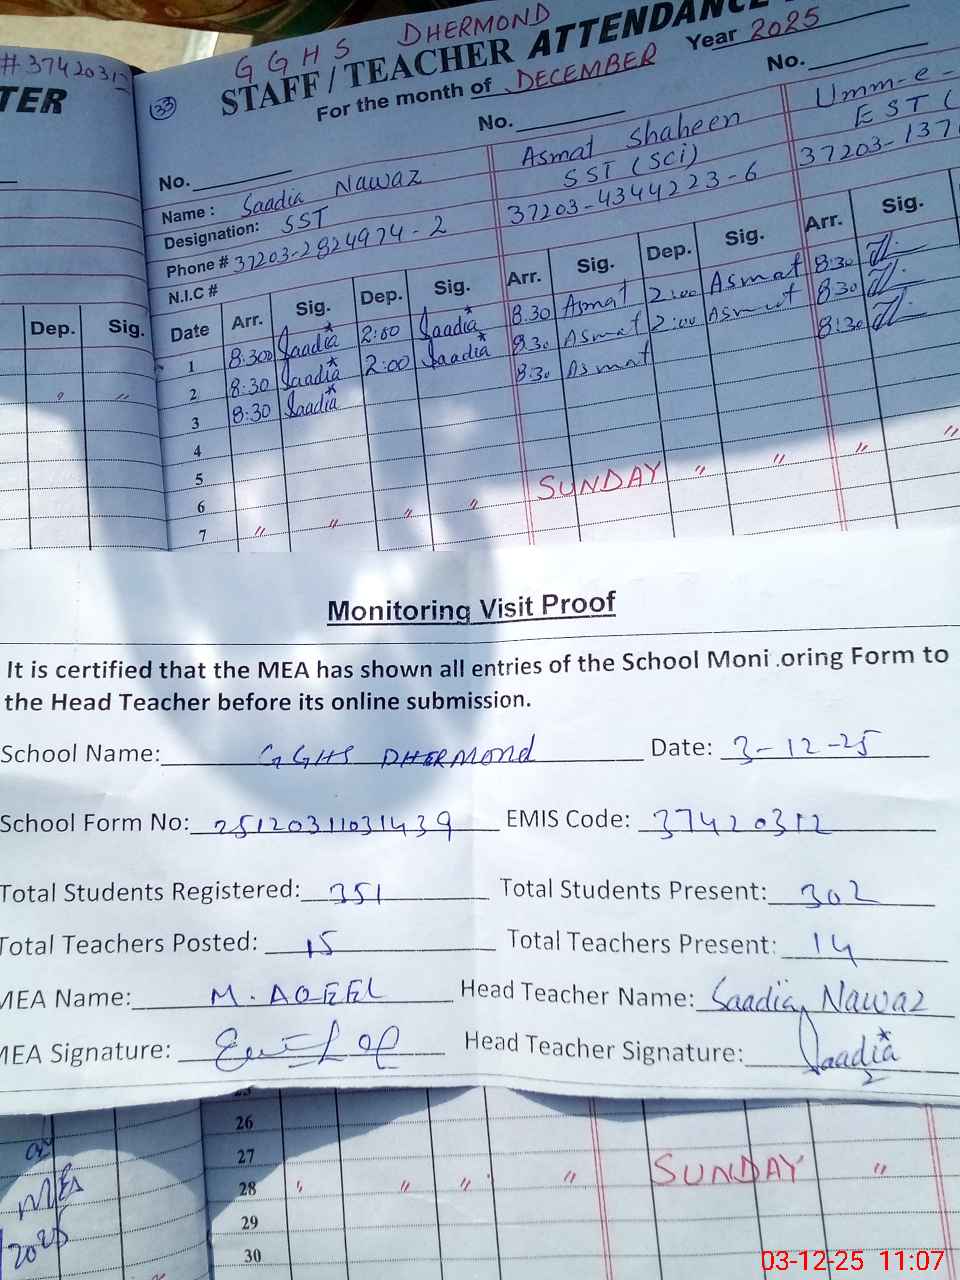 # 37420312
TER
GGHS DHERMOND
STAFF / TEACHER ATTENDANCE
33
For the month of DECEMBER Year 2025
No. No. No.
Name : Saadia Nawaz Asmat Shaheen Umm-e-
Designation: SST SST (Sci) EST (
Phone # 37203-2824974-2 37203-4344223-6 37203-137
N.I.C #
Dep. Sig. Date Arr. Sig. Dep. Sig. Arr. Sig. Dep. Sig. Arr. Sig.
1 8:30 Saadia 2:00 Saadia 8:30 Asmat 2:00 Asmat 8:30
2 8:30 Saadia 2:00 Saadia 8:30 Asmat 2:00 Asmat 8:30
3 8:30 Saadia 8:30 Asmat 8:30
4
5
6
7 " " " " SUNDAY " " " "
Monitoring Visit Proof
It is certified that the MEA has shown all entries of the School Moni.oring Form to
the Head Teacher before its online submission.
School Name: GGHS DHERMOND Date: 3-12-25
School Form No: 25120311031439 EMIS Code: 37420312
Total Students Registered: 351 Total Students Present: 302
Total Teachers Posted: 15 Total Teachers Present: 14
MEA Name: M. AQEEL Head Teacher Name: Saadia Nawaz
MEA Signature: Head Teacher Signature: Saadia
26
27
28 " " " " SUNDAY "
29
30
MEA
2025
03-12-25 11:07